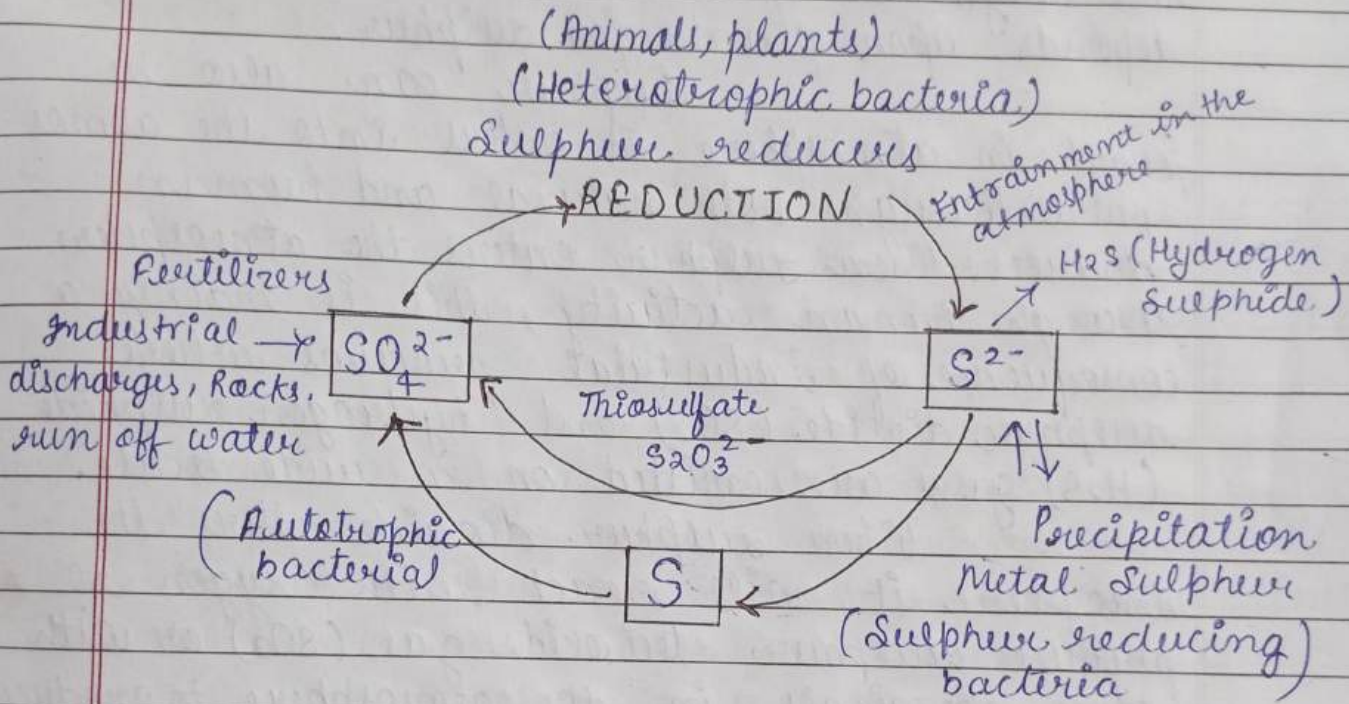 (Animals, plants)
(Heterotrophic bacteria)
Sulphur reducers
REDUCTION
Entrainment in the
atmosphere
H2S (Hydrogen
Sulphide)
Fertilizers
Industrial
discharges, Rocks,
run off water
SO₄²⁻
S²⁻
Thiosulfate
S₂O₃²⁻
(Autotrophic
bacteria)
S
Precipitation
Metal Sulphur
(Sulphur reducing)
bacteria